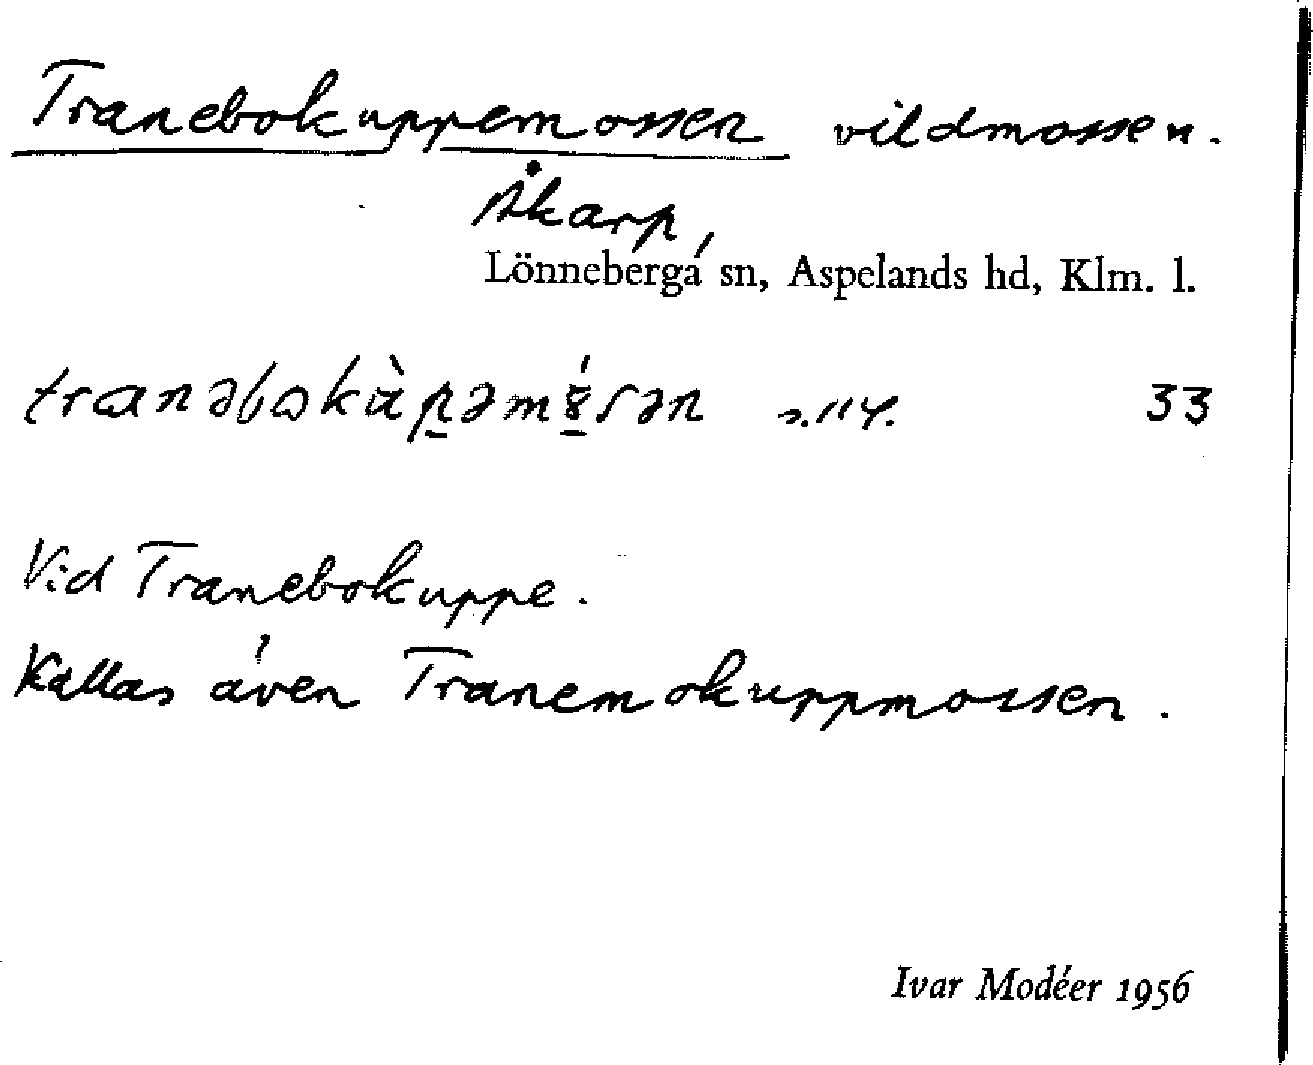 Tranebokuppemossen vildmossen.
Åkarp,
Lönneberga sn, Aspelands hd, Klm. l.
33
Vid Tranebokuppe.
Kallas även Tranemokuppmossen.
Ivar Modéer 1956